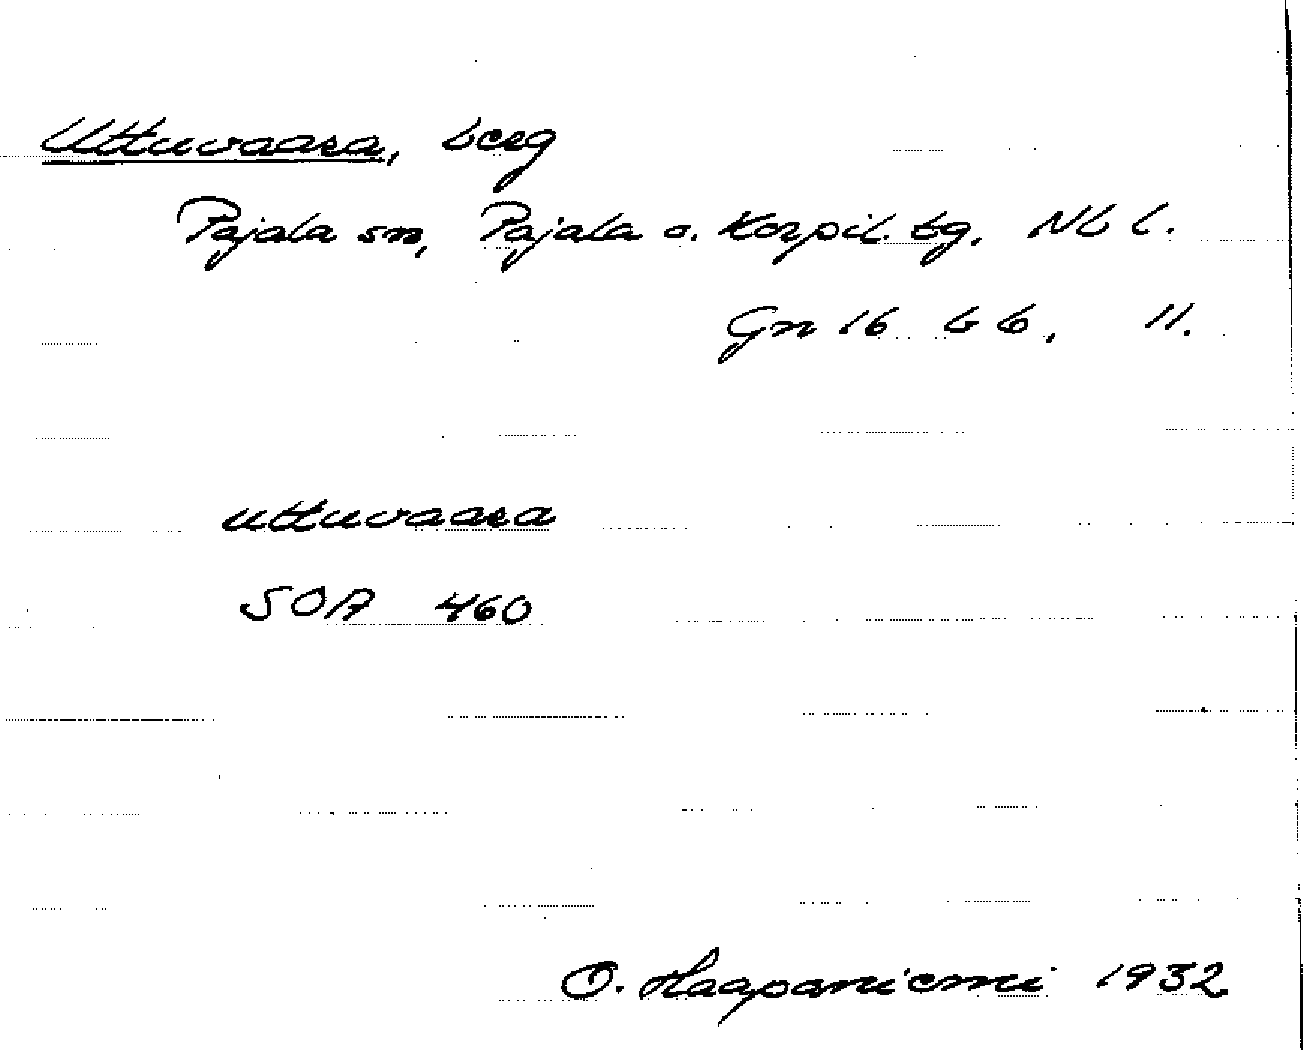 Uttuvaara, berg
Pajala sn, Pajala o. Korpil. tg, Nb l.
Gn 16 b b, 11.
uttuvaara
SOA 460
O. Haapaniemi 1932